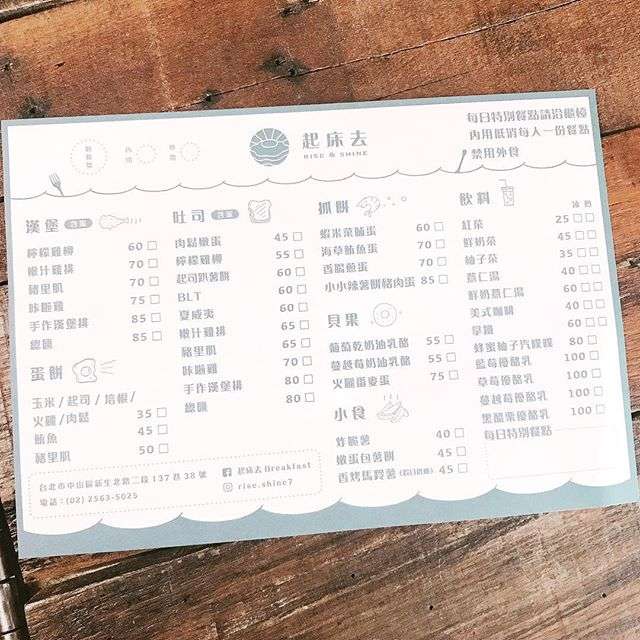 起床去
RISE & SHINE
每日特別餐點請洽櫃檯
內用低消每人一份餐點
禁用外食
漢堡
檸檬雞柳 60
嫩汁雞排 70
豬里肌 70
咔啦雞 75
手作漢堡排 85
總匯 85
蛋餅
玉米/起司/培根/
火腿/肉鬆 35
鮪魚 45
豬里肌 50
吐司
肉鬆嫩蛋 45
檸檬雞柳 55
起司趴薯餅 60
BLT 60
夏威夷 60
嫩汁雞排 65
豬里肌 65
咔啦雞 70
手作漢堡排 80
總匯 80
抓餅
蝦米菜脯蛋 60
海草鮪魚蛋 70
香腸煎蛋 70
小小辣薯餅豬肉蛋 85
貝果
葡萄乾奶油乳酪 55
蔓越莓奶油乳酪 55
火腿蛋 75
小食
炸脆薯 40
嫩蛋包薯餅 45
香烤馬鈴薯 45
飲料
冰 熱
紅茶 25
鮮奶茶 45
柚子茶 35
薏仁湯 40
鮮奶薏仁湯 60
美式咖啡 40
拿鐵 60
蜂蜜柚子汽 80
藍莓優酪乳 100
草莓優酪乳 100
蔓越莓優酪乳 100
黑醋栗優酪乳 100
每日特別餐點
台北市中山區新生北路二段 137 巷 38 號
電話:(02) 2563-5025
起床去 Breakfast
rise.shine7